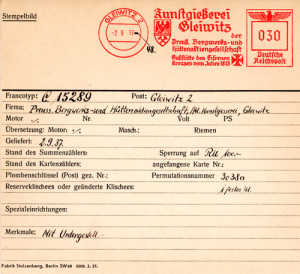 Stempelbild
GLEIWITZ 2
-2.9.37
48.
Kunstgießerei
Gleiwitz
der
Preuß. Bergwerks- und
Hüttenaktiengesellschaft
Gußstätte des Eisernen
Kreuzes vom Jahre 1813
030
Deutsche
Reichspost
Francotyp: C 15289 Post: Gleiwitz 2
Firma: Preuss. Bergwerks- und Hüttenaktiengesellschaft, Abt. Kunstgiesserei, Gleiwitz
Motor Nr. Volt PS
Übersetzung: Motor: Masch.: Riemen
Geliefert: 2.9.37.
Stand des Summenzählers: Sperrung auf
Stand des Kartenzählers: angefangene Karte Nr.:
Plombenschlüssel (Post) gez. Nr.: Permutationsnummer
Reserveklischees oder geänderte Klischees:
Spezialeinrichtungen:
Merkmale: Mit Untergestell
Fabrik Stolzenberg, Berlin SW 68